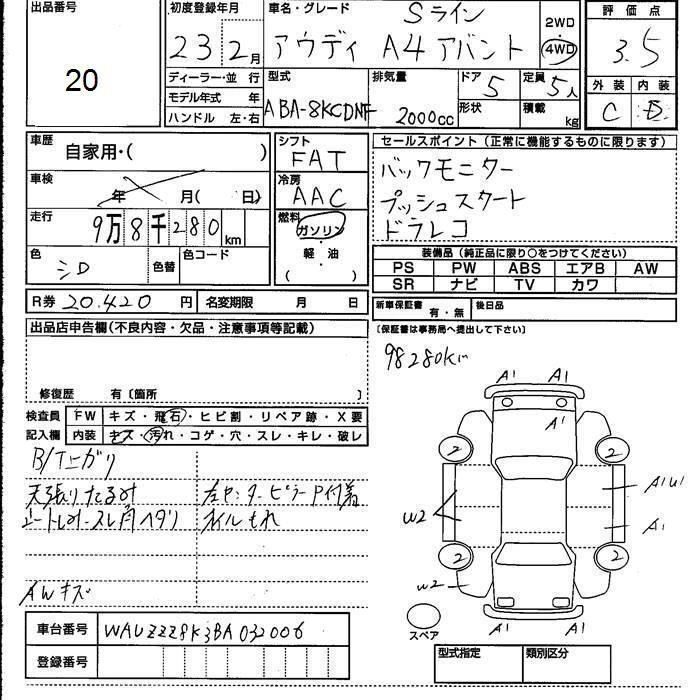 出品番号 初度登録年月 車名・グレード Sライン 2WD 評価点
20 23 2月 アウディ A4 アバント 4WD 3.5
ディーラー・並 行 型式 排気量 ドア 定員 外装 内装
モデル年式 年 ABA-8KCDNF 2000cc 5 5人 C D
ハンドル 左・右 形状 積載 kg
車歴 シフト セールスポイント(正常に機能するものに限ります)
自家用・( ) FAT バックモニター
車検 冷房 プッシュスタート
年 月( 日) AAC ドラレコ
走行 燃料
9万8千280km ガソリン
色 色替 色コード 軽油 装備品(純正品に限り○をつけてください)
シロ ( ) PS PW ABS エアB AW
SR ナビ TV カワ
R券 20.420 円 名変期限 月 日 新車保証書 有・無 後日品
出品店申告欄(不良内容・欠品・注意事項等記載) (保証書は事務局へ提出して下さい)
98280km
修復歴 有〔箇所 〕
検査員 FW キズ・飛石・ヒビ割・リペア跡・X要
記入欄 内装 キズ・汚れ・コゲ・穴・スレ・キレ・破レ
A1 A1
A1
2 2
B/T上ガリ
天張りたるみ 左センターピラーP付着
スレ角ヘタリ オイルもれ
W2 A1U1
A1
2 2
AWキズ W2
A1 A1
スペア
車台番号 WAUZZZ8K3BA032006
登録番号 型式指定 類別区分